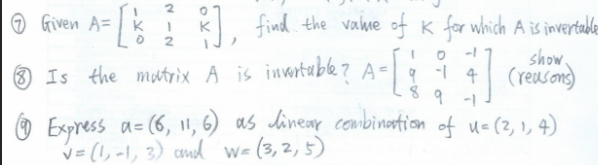 ⑦ Given A= [1 2 0
K 1 K
0 2 1], find the value of K for which A is invertable
⑧ Is the matrix A is invertable? A= [1 0 -1
9 -1 4
8 9 -1] show (reasons)
⑨ Express a=(6, 11, 6) as linear combination of u=(2, 1, 4)
v=(1, -1, 3) and w=(3, 2, 5)